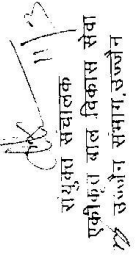 संयुक्त संचालक
एकीकृत बाल विकास सेवा
उज्जैन संभाग, उज्जैन